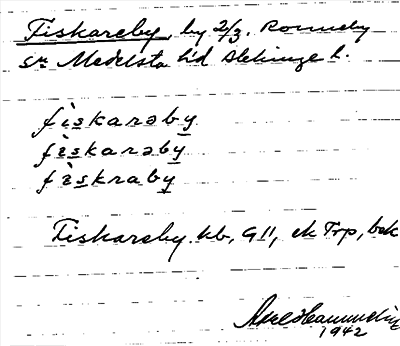 Fiskareby, by 2/3. Ronneby
sn Medelsta hd Blekinge l.
fìskarəby
fìskarəby
fìskraby
Fiskareby kb, G11, ek Trp, bek
Axel
1942